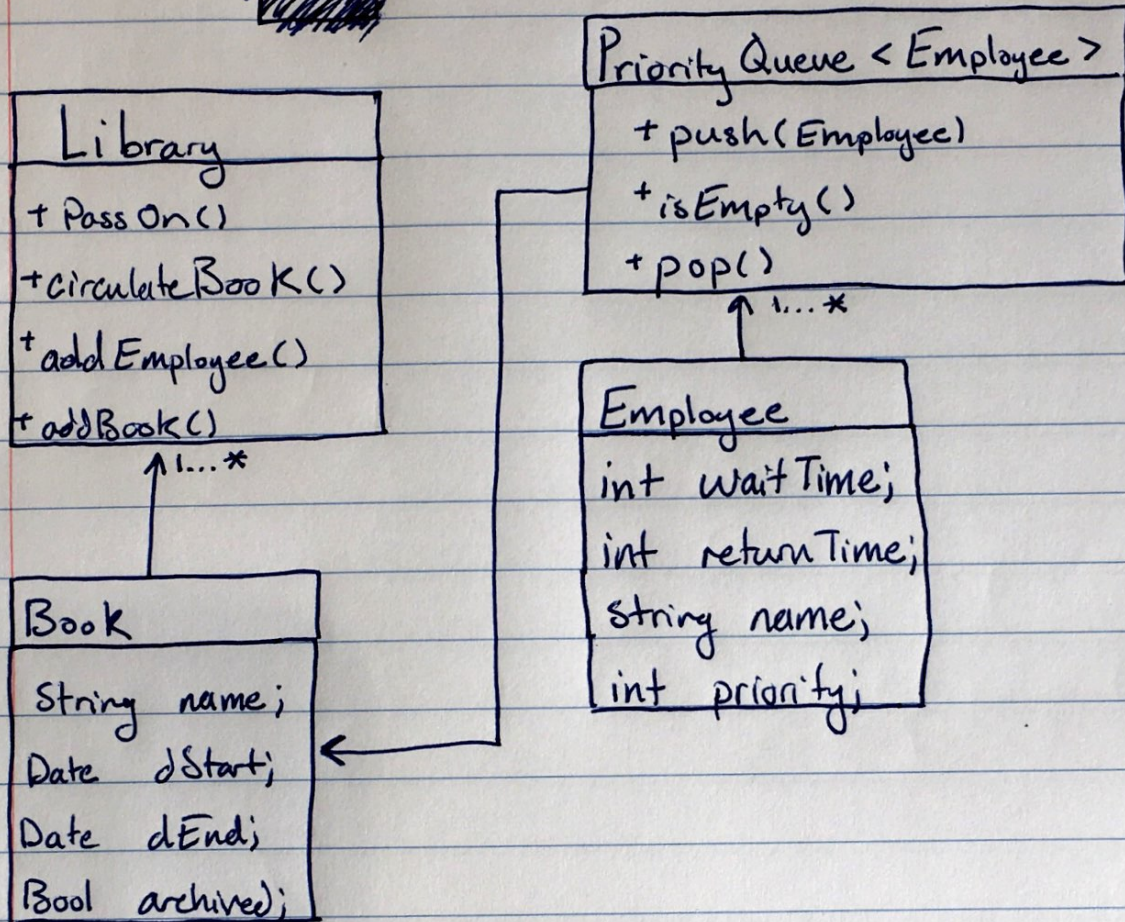 Library
+ PassOn()
+circulateBook()
+addEmployee()
+addBook()
1...*
Book
String name;
Date dStart;
Date dEnd;
Bool archived;
Priority Queue < Employee >
+ push(Employee)
+isEmpty()
+ pop()
1...*
Employee
int waitTime;
int returnTime;
String name;
int priority;